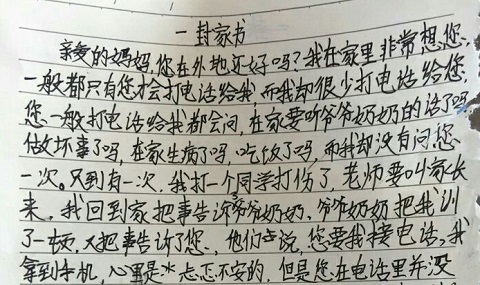 一封家书
亲爱的妈妈,您在外地还好吗?我在家里非常想您、
一般都只有您才会打电话给我,而我却很少打电话给您、
您一般打电话给我都会问,在家要听爷爷奶奶的话了吗
做坏事了吗,在家生病了吗,吃饭了吗,而我却没有问您
一次。只到有一次,我打一个同学打伤了,老师要叫家长
来,我回到家把事告诉爷爷奶奶、爷爷奶奶把我训
了一顿,又把事告诉了您、他们说,您要我接电话,我
拿到手机,心里是忐忑不安的,但是您在电话里并没